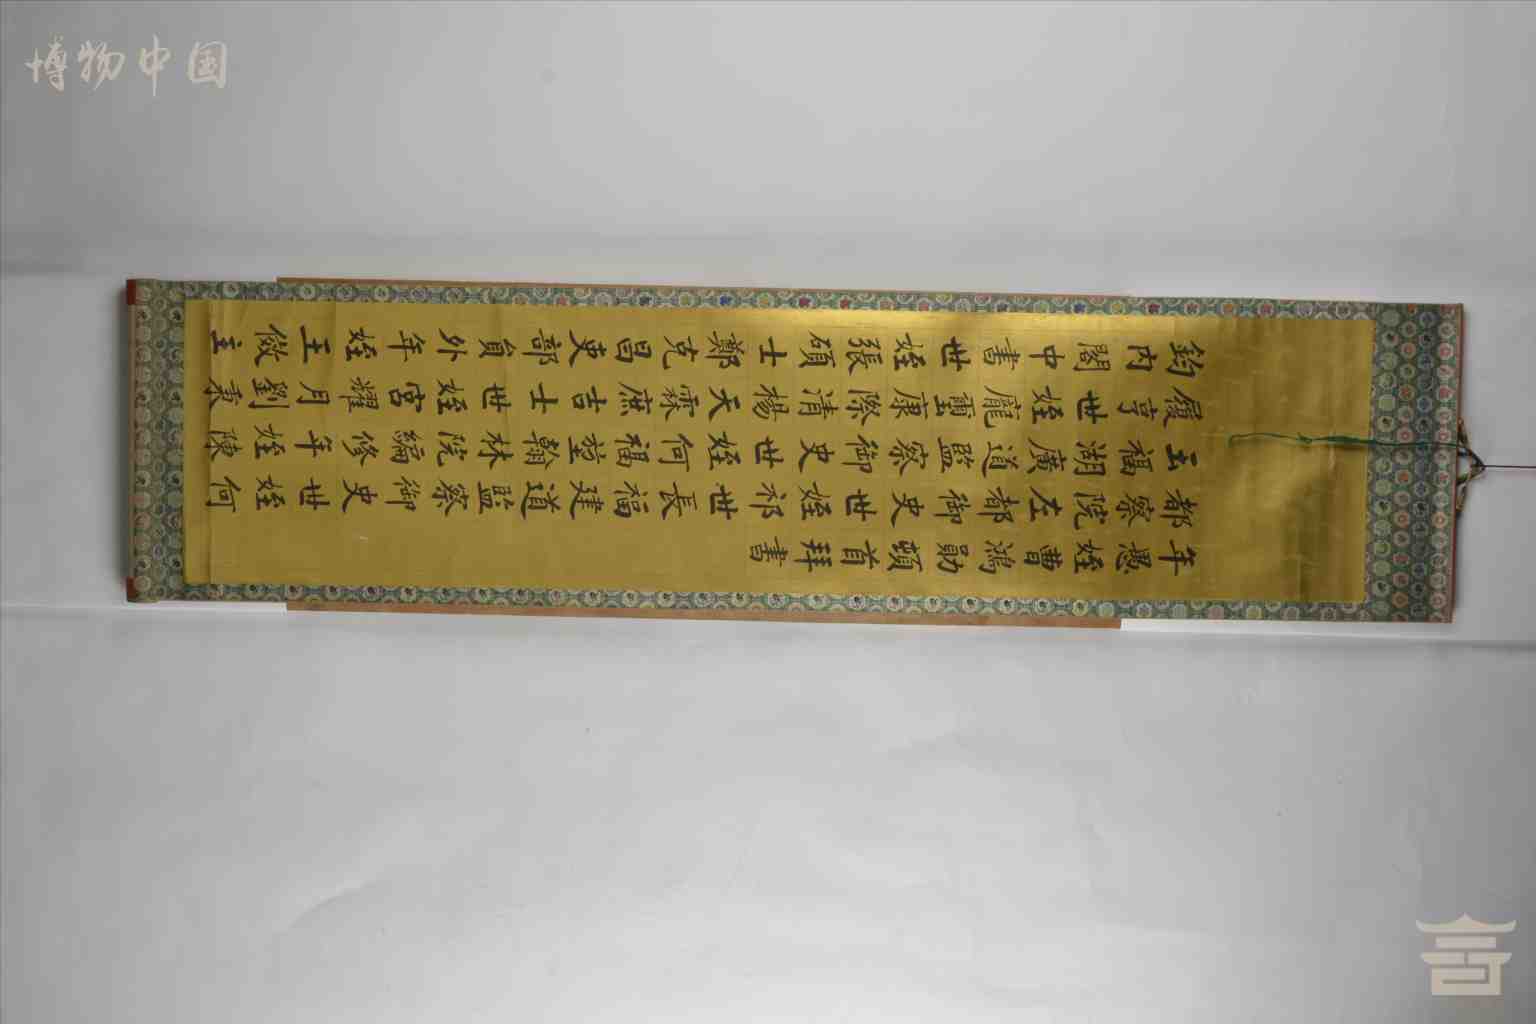 年愚姪曹鴻勛頓首拜書
都察院左都御史世姪祁世長福建道監察御史世姪何
玉福湖廣道監察御史世姪何福堃翰林院編修年姪陳
履亨世姪龐璽康際清楊天霖庶吉士世姪宮耀月劉秉
鈞內閣中書世姪張碩士鄭克昌吏部員外年姪王儆主
博物中国